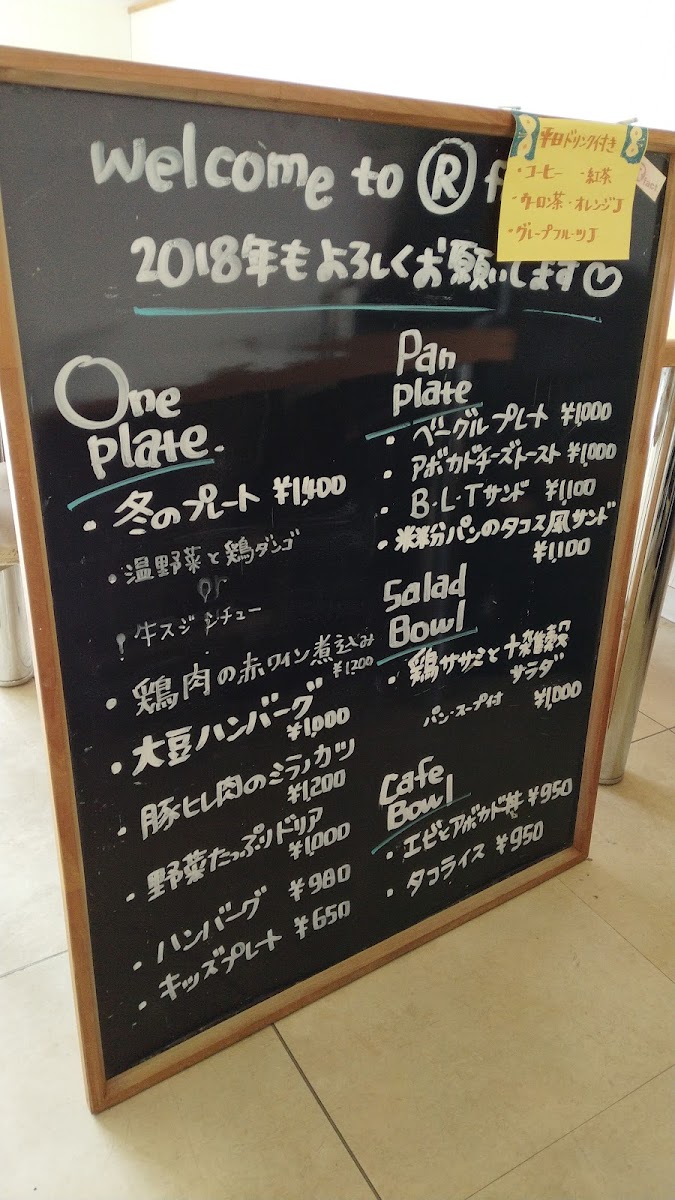 welcome to Ⓡ f
2018年もよろしくお願いします♡
平日ドリンク付き
・コーヒー ・紅茶
・ウーロン茶・オレンジJ
・グレープフルーツJ
fact
One
plate.
・冬のプレート ¥1,400
・温野菜と鶏ダンゴ
or
牛スジシチュー
・鶏肉の赤ワイン煮込み
¥1,200
・大豆ハンバーグ
¥1,000
・豚ヒレ肉のミラノカツ
¥1,200
・野菜たっぷりドリア
¥1,000
・ハンバーグ ¥980
・キッズプレート ¥650
Pan
plate
・ベーグルプレート ¥1,000
・アボカドチーズトースト ¥1,000
・B・L・Tサンド ¥1,100
・米粉パンのタコス風サンド
¥1,100
Salad
Bowl
・鶏ササミと十雑穀
サラダ
パン・スープ付 ¥1,000
Cafe
Bowl
・エビとアボカド丼 ¥950
・タコライス ¥950